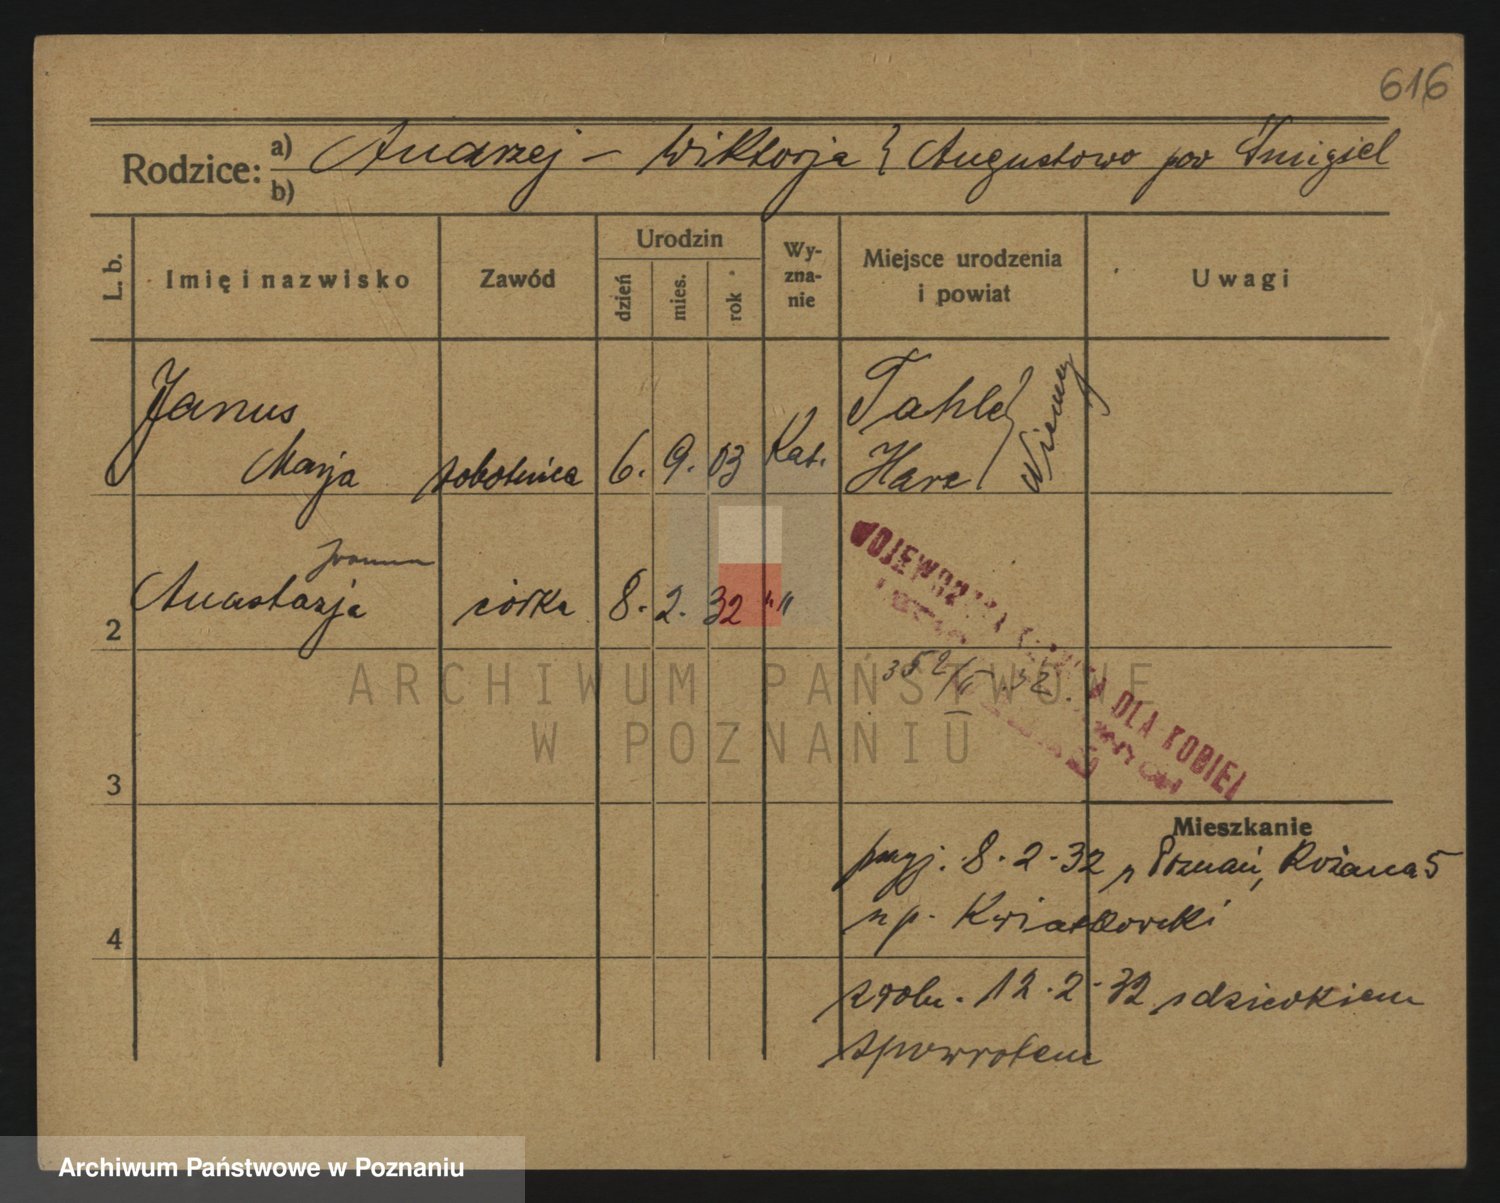 616
Rodzice: a) Andrzej – Wiktorja } Augustowo pow Śmigiel
b)
L. b. Imię i nazwisko Zawód Urodzin dzień mies. rok Wy-zna-nie Miejsce urodzenia i powiat Uwagi
Janus
Marja robotnica 6. 9. 03 Kat. Tahle Harz } Niemcy
Joanna
2 Anastazja córka 8. 2. 32 "
WOJEWÓDZKA KLINIKA DLA KOBIET
352/II 32
3
Mieszkanie
przyj. 8.2.32 z Poznań, Różana 5
4 u p. Kwiatkowski
zwoln. 12.2.32 z dzieckiem
spowrotem
ARCHIWUM PAŃSTWOWE
W POZNANIU
Archiwum Państwowe w Poznaniu